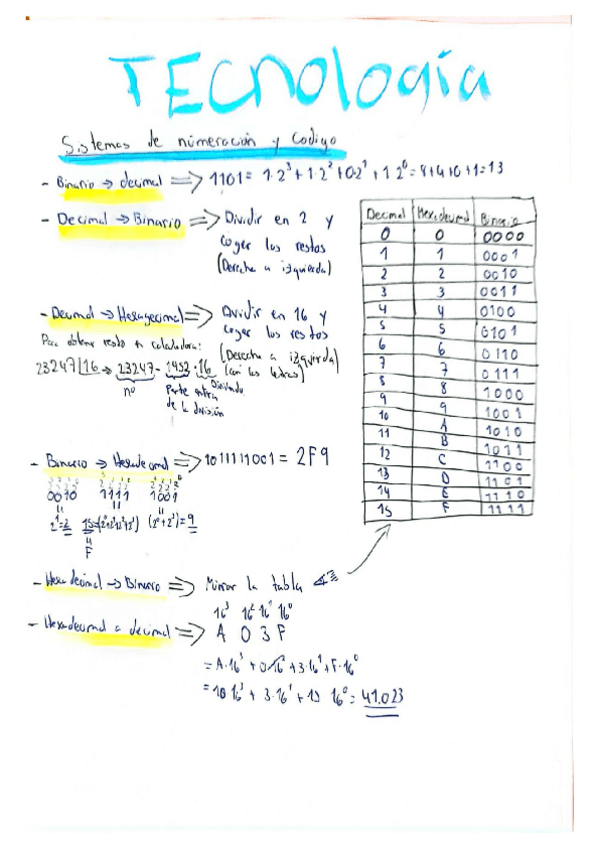 TECnología
Sistemas de númeración y código
- Binario → decimal ⇒ 1101 = 1·2³ + 1·2² + 0·2¹ + 1·2⁰ = 8+4+0+1=13
- Decimal → Binario ⇒ Dividir en 2 y
coger los restos
(Derecha a izquierda)
- Decimal → Hexagecimal ⇒ Dividir en 16 y
coger los restos
(Derecha a izquierda)
(con las letras)
Para obtener resto en calculadora:
23247 | 16 → 23247 - 1452 · 16
nº
Parte entera
de la división
Dividendo
- Binario → Hexadecimal ⇒ 1011111001 = 2F9
0010 1111 1001
2¹=2 15=(2⁰+2¹+2²+2³) (2⁰+2³)=9
F
- Hexadecimal → Binario ⇒ Mirar la tabla
- Hexadecimal a decimal ⇒
16³ 16² 16¹ 16⁰
A 0 3 F
= A·16³ + 0·16² + 3·16¹ + F·16⁰
= 10·16³ + 3·16¹ + 15 16⁰ = 41.023
Decimal Hexadecimal Binario
0 0 0000
1 1 0001
2 2 0010
3 3 0011
4 4 0100
5 5 0101
6 6 0110
7 7 0111
8 8 1000
9 9 1001
10 A 1010
11 B 1011
12 C 1100
13 D 1101
14 E 1110
15 F 1111